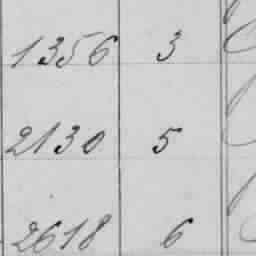 1356 3
2130 5
2618 6